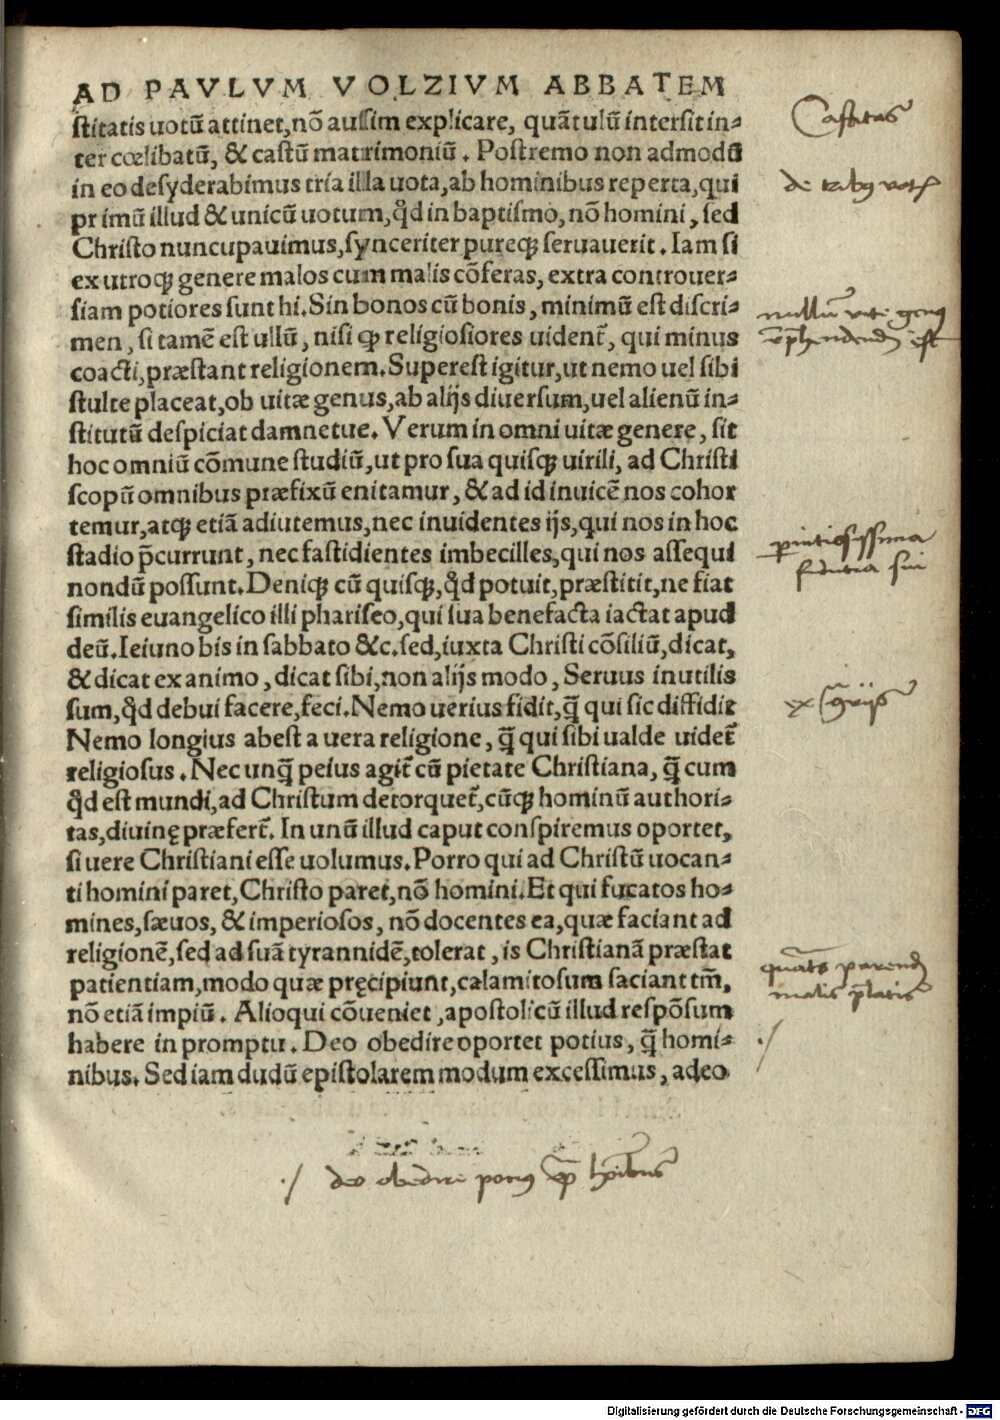 AD PAVLVM VOLZIVM ABBATEM
stitatis uotū attinet, nō ausim explicare, quātulū intersit in-
ter cœlibatū, & castū matrimoniū. Postremo non admodū
in eo desyderabimus tria illa uota, ab hominibus reperta, qui
primū illud & unicū uotum, qd̄ in baptismo, nō homini, sed
Christo nuncupauimus, synceriter pureqꝫ seruauerit. Iam si
ex utroqꝫ genere malos cum malis cōferas, extra controuer-
siam potiores sunt hi. Sin bonos cū bonis, minimū est discri-
men, si tamē est ullū, nisi ꝙ religiosiores uident̄, qui minus
coacti, præstant religionem. Superest igitur, ut nemo uel sibi
stulte placeat, ob uitæ genus, ab alijs diuersum, uel alienū in-
stitutū despiciat damnetue. Verum in omni uitæ genere, sit
hoc omniū cōmune studiū, ut pro sua quisqꝫ uirili, ad Christi
scopū omnibus præfixū enitamur, & ad id inuicē nos cohor
temur, atqꝫ etiā adiutemus, nec inuidentes ijs, qui nos in hoc
stadio p̄currunt, nec fastidientes imbecilles, qui nos assequi
nondū possunt. Deniqꝫ cū quisqꝫ, qd̄ potuit, præstitit, ne fiat
similis euangelico illi phariseo, qui sua benefacta iactat apud
deū. Ieiuno bis in sabbato &c. sed, iuxta Christi cōsiliū, dicat,
& dicat ex animo, dicat sibi, non alijs modo, Seruus inutilis
sum, qd̄ debui facere, feci. Nemo uerius fidit, q̄ qui sic diffidit
Nemo longius abest a uera religione, q̄ qui sibi ualde uidet̄
religiosus. Nec unq̄ peius agit̄ cū pietate Christiana, q̄ cum
qd̄ est mundi, ad Christum detorquet̄, cūqꝫ hominū authori-
tas, diuinę præfert̄. In unū illud caput conspiremus oportet,
si uere Christiani esse uolumus. Porro qui ad Christū uocan-
ti homini paret, Christo paret, nō homini. Et qui fucatos ho-
mines, sæuos, & imperiosos, nō docentes ea, quæ faciant ad
religionē, sed ad suā tyrannidē, tolerat, is Christianā præstat
patientiam, modo quæ pręcipiunt, calamitosum faciant tm̄,
nō etiā impiū. Alioqui cōueniet, apostolicū illud respōsum
habere in promptu. Deo obedire oportet potius, q̄ homi-
nibus. Sed iam dudū epistolarem modum excessimus, adeo
Castitas
de tribꝰ votis
nullū vite genꝰ
rep̄hendendū est
p̄nitiosissima
fiducia sui
quaten̄ parendū
malis p̄latis
./
./ deo obedire potiꝰ q̄ hoībus